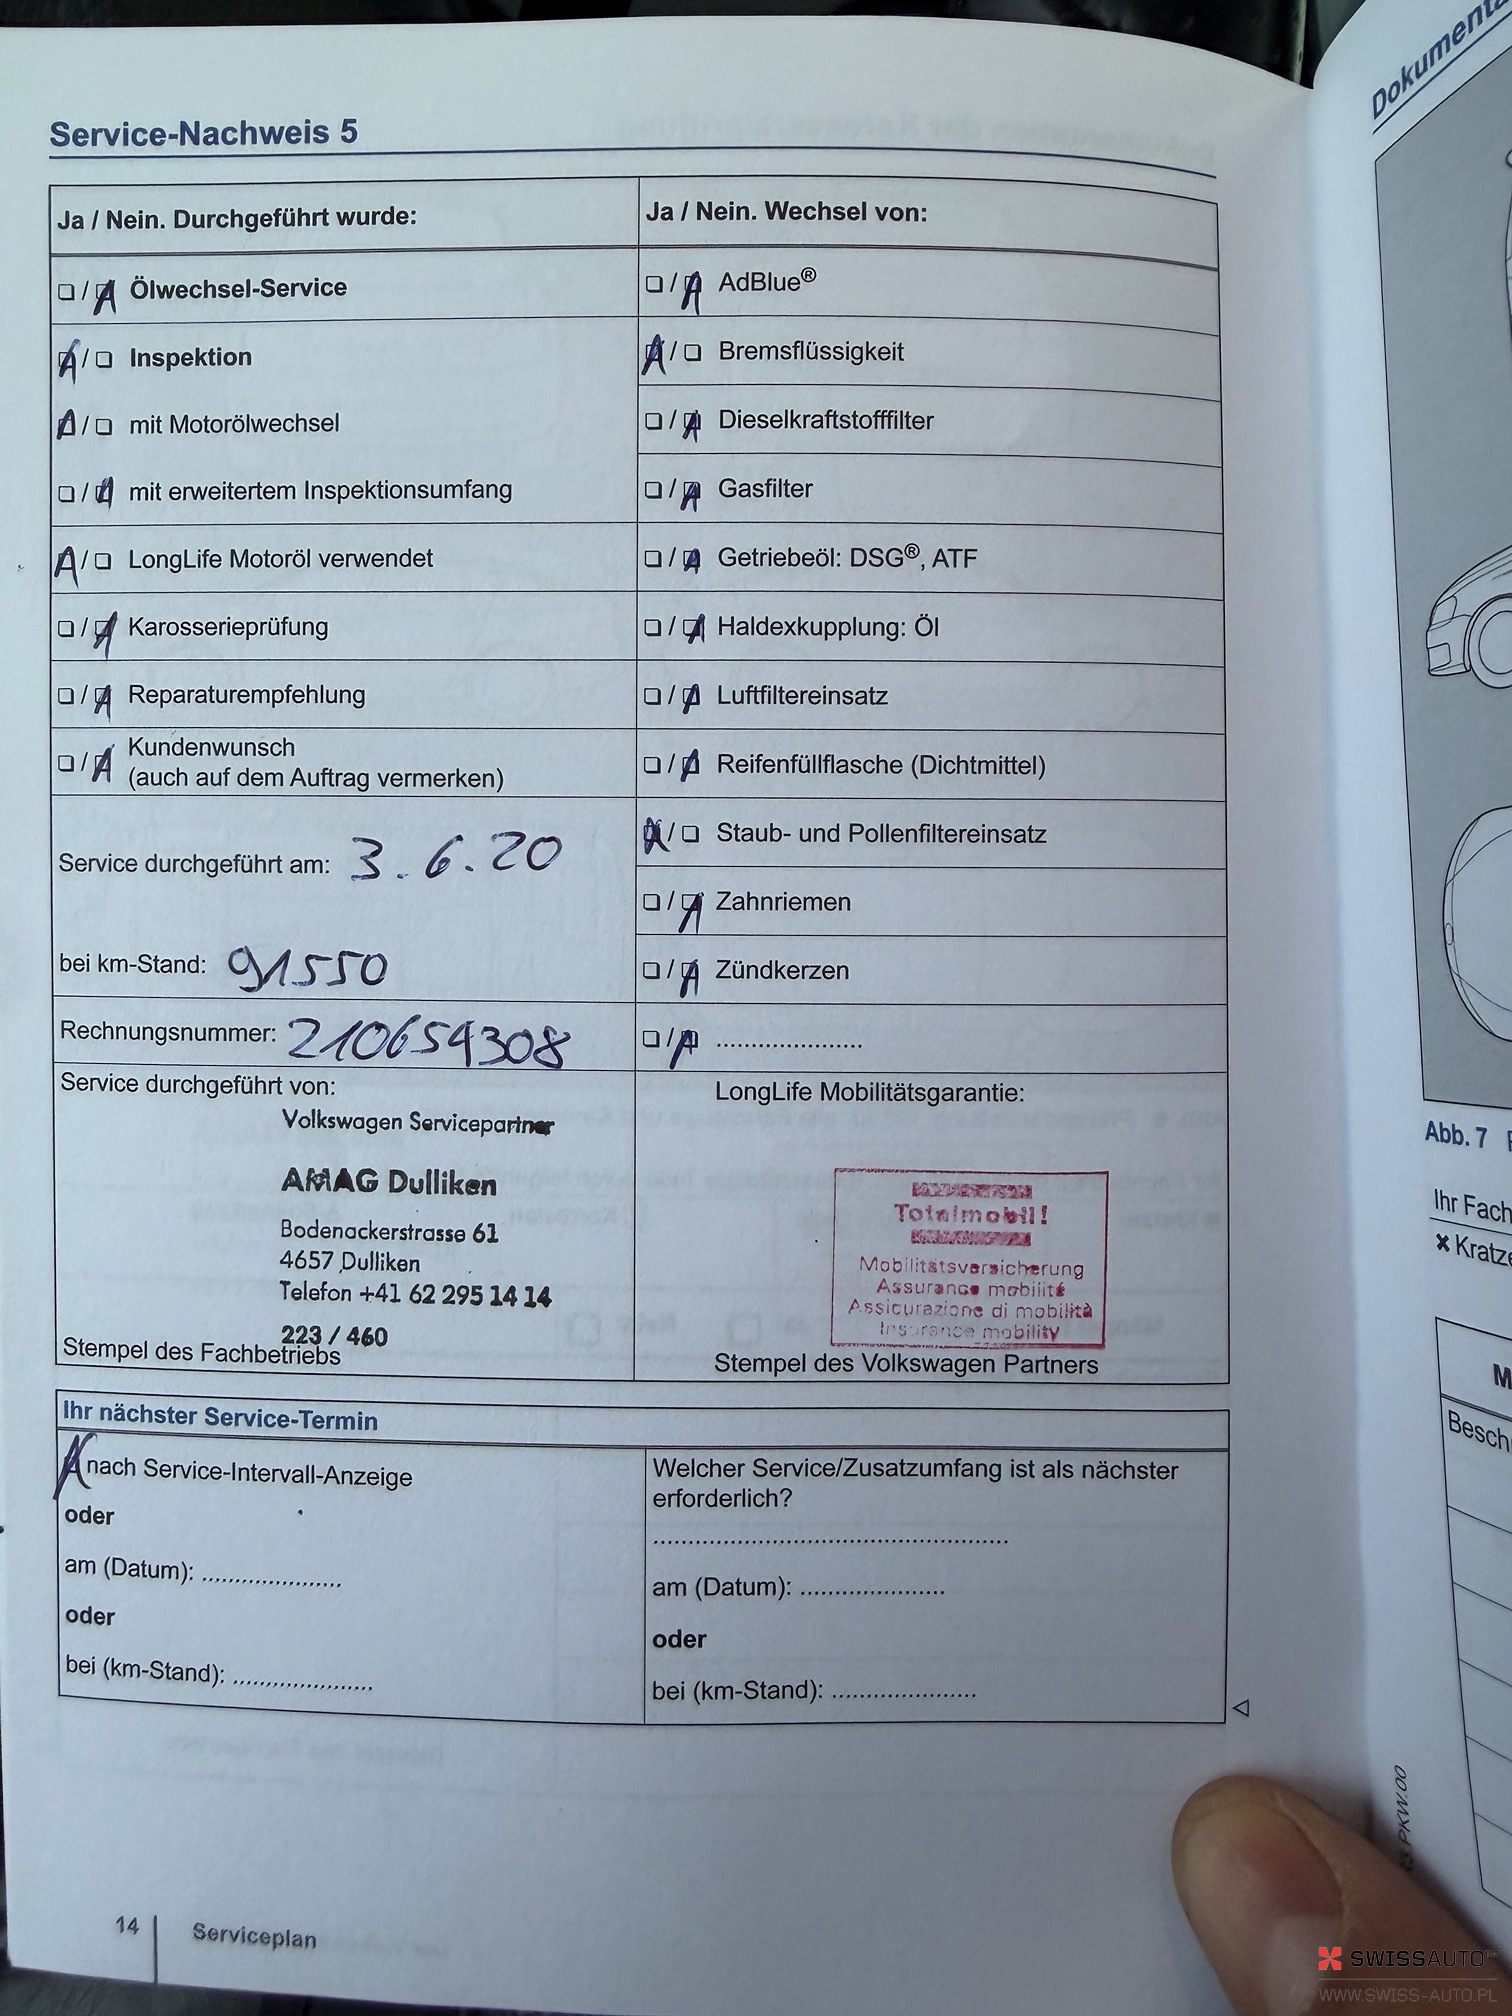 Service-Nachweis 5
Ja / Nein. Durchgeführt wurde:
❏ / ❏ Ölwechsel-Service
❏ / ❏ Inspektion
❏ / ❏ mit Motorölwechsel
❏ / ❏ mit erweitertem Inspektionsumfang
❏ / ❏ LongLife Motoröl verwendet
❏ / ❏ Karosserieprüfung
❏ / ❏ Reparaturempfehlung
❏ / ❏ Kundenwunsch
(auch auf dem Auftrag vermerken)
Service durchgeführt am: 3.6.20
bei km-Stand: 91550
Rechnungsnummer: 210654308
Service durchgeführt von:
Volkswagen Servicepartner
AMAG Dulliken
Bodenackerstrasse 61
4657 Dulliken
Telefon +41 62 295 14 14
223 / 460
Stempel des Fachbetriebs
Ja / Nein. Wechsel von:
❏ / ❏ AdBlue®
❏ / ❏ Bremsflüssigkeit
❏ / ❏ Dieselkraftstofffilter
❏ / ❏ Gasfilter
❏ / ❏ Getriebeöl: DSG®, ATF
❏ / ❏ Haldexkupplung: Öl
❏ / ❏ Luftfiltereinsatz
❏ / ❏ Reifenfüllflasche (Dichtmittel)
❏ / ❏ Staub- und Pollenfiltereinsatz
❏ / ❏ Zahnriemen
❏ / ❏ Zündkerzen
❏ / ❏ .....................
LongLife Mobilitätsgarantie:
Totalmobil!
Mobilitätsversicherung
Assurance mobilité
Assicurazione di mobilità
Insurance mobility
Stempel des Volkswagen Partners
Ihr nächster Service-Termin
nach Service-Intervall-Anzeige
oder
am (Datum): ....................
oder
bei (km-Stand): ....................
Welcher Service/Zusatzumfang ist als nächster
erforderlich?
..................................................
am (Datum): .....................
oder
bei (km-Stand): .....................
14 Serviceplan
Abb. 7
Ihr Fach
✖ Kratze
Besch
PKW.00
SWISSAUTO
WWW.SWISS-AUTO.PL